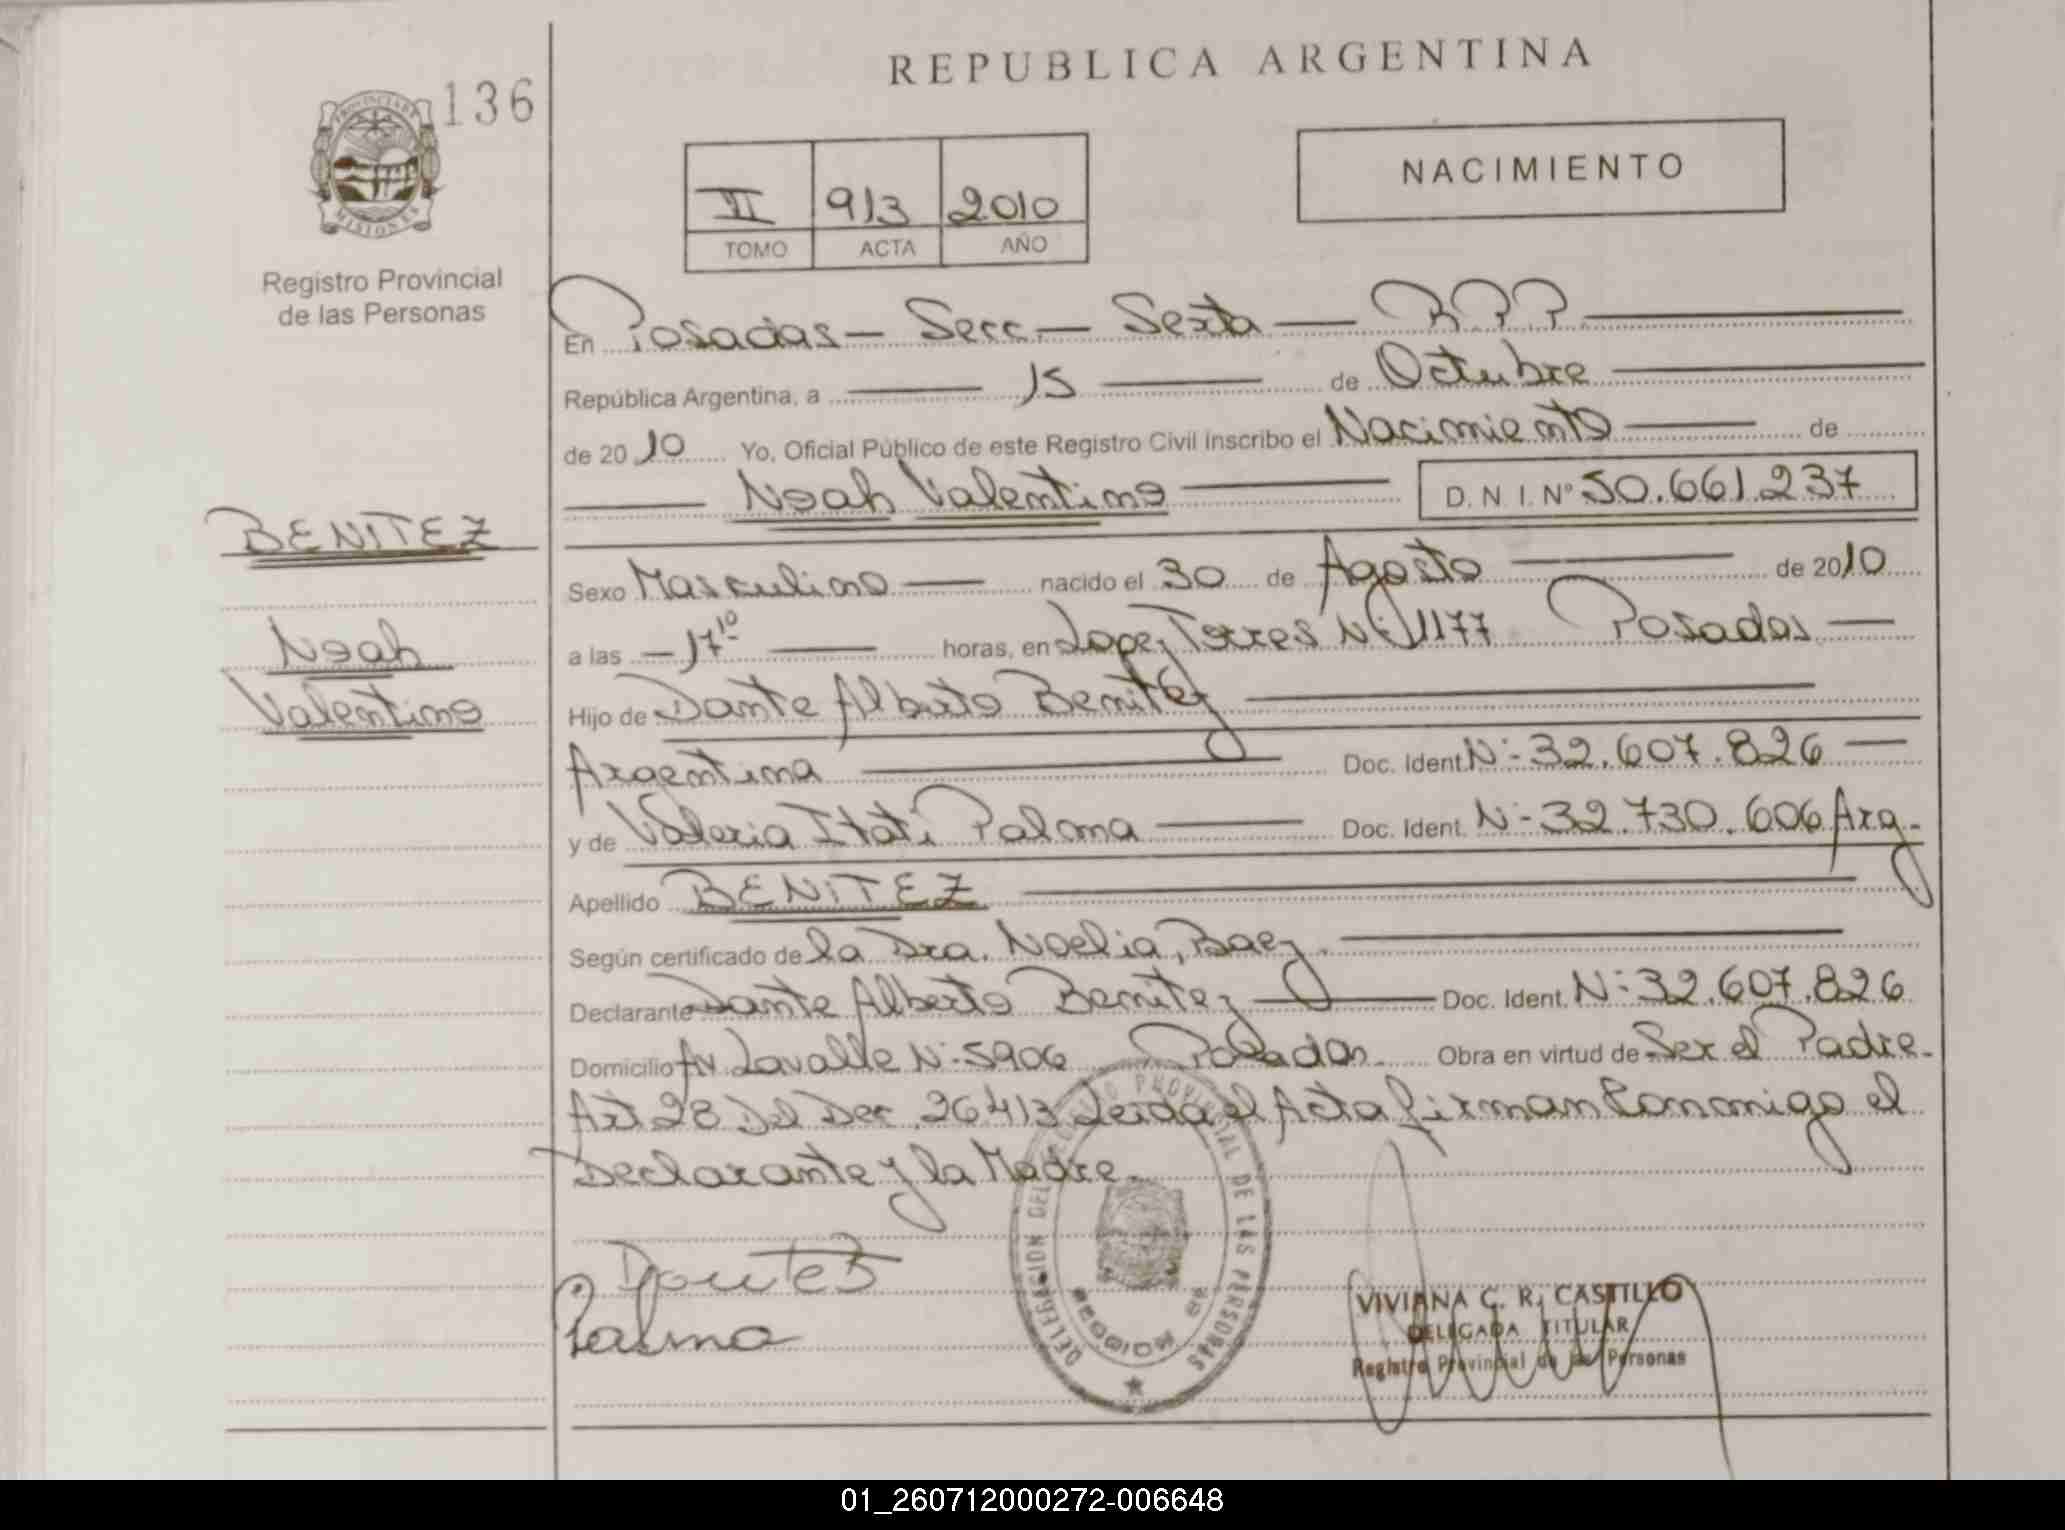 REPUBLICA ARGENTINA
136
PROVINCIA DE
MISIONES
Registro Provincial
de las Personas
II 913 2010
TOMO ACTA AÑO
NACIMIENTO
En Posadas - Secc. - Sexta - R.P.P.
República Argentina, a 15 de Octubre
de 2010 Yo, Oficial Público de este Registro Civil inscribo el Nacimiento de
Noah Valentino D.N.I. Nº 50.661.237
BENITEZ
Noah
Valentino
Sexo Masculino nacido el 30 de Agosto de 2010
a las - 17 10 horas, en Lopez Torres Nº 1177 Posadas
Hijo de Dante Alberto Benitez
Argentina Doc. Ident. Nº 32.607.826
y de Valeria Itati Palma Doc. Ident. Nº 32.730.606 Arg.
Apellido BENITEZ
Según certificado de la Dra. Noelia, Baez
Declarante Dante Alberto Benitez Doc. Ident. Nº 32.607.826
Domicilio Av. Lavalle Nº 5906 Posadas. Obra en virtud de Ser el Padre.
Art 28 Del Dec. 26413 Leida el Acta firman Conmigo el
Declarante y la Madre.
Dante B
Palma
DELEGACION DEL REGISTRO PROVINCIAL DE LAS PERSONAS
VIVIANA C. R. CASTILLO
DELEGADA TITULAR
Registro Provincial de las Personas
01_260712000272-006648